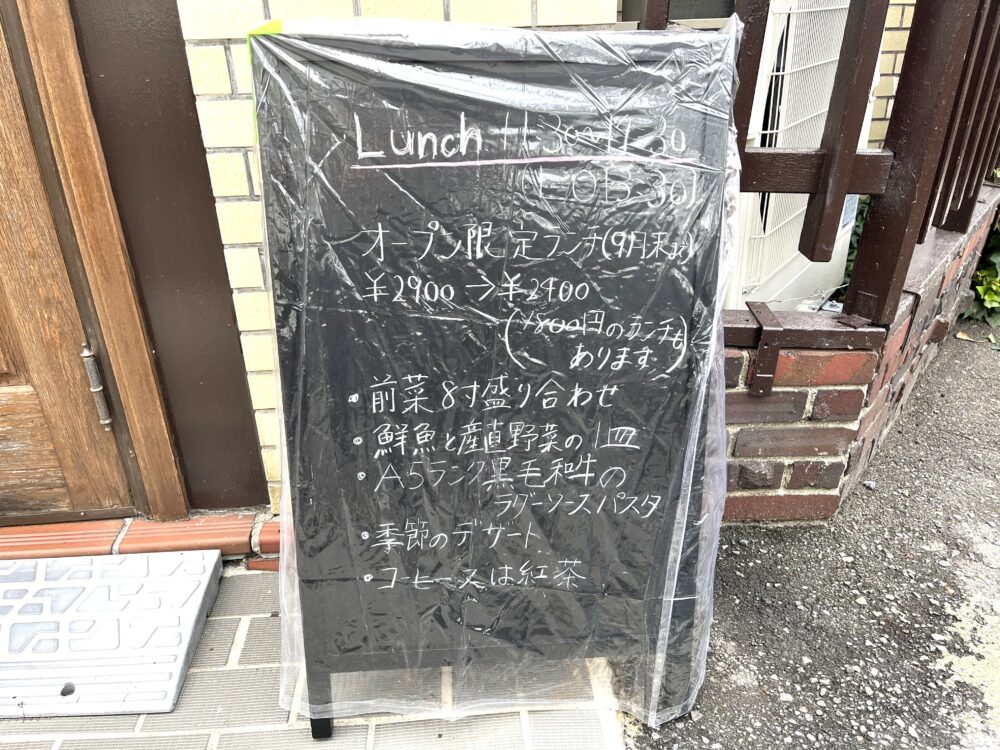 Lunch 11:30~17:30
オープン限定ランチ(9月末まで)
¥2900→¥2400
(1800円のランチも
あります)
・前菜8寸盛り合わせ
・鮮魚と産直野菜の1皿
・A5ランク黒毛和牛の
ラグーソースパスタ
・季節のデザート
・コーヒー又は紅茶